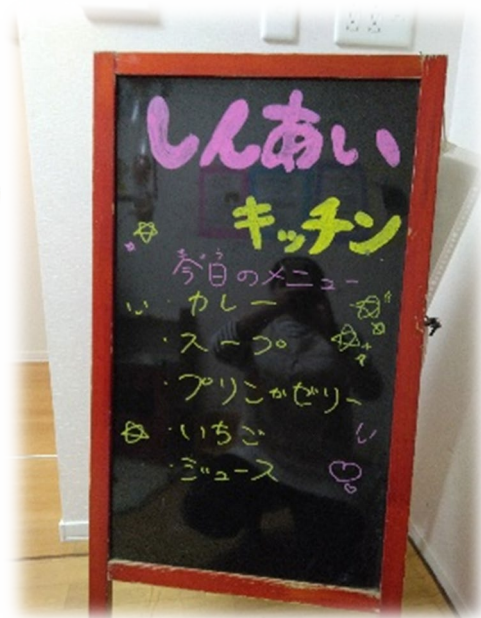 しんあい
キッチン
今日のメニュー
・カレー
・スープ
・プリンかゼリー
・いちご
・ジュース